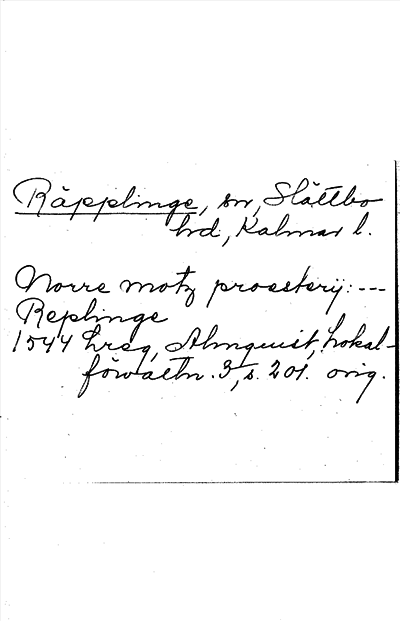 Räpplinge, sn, Slättbo
hd, Kalmar l.
Norre motz proesterij: ---
Replinge
1544 hrsg, Almquist, Lokal-
förvaltn. 3, s. 201. orig.